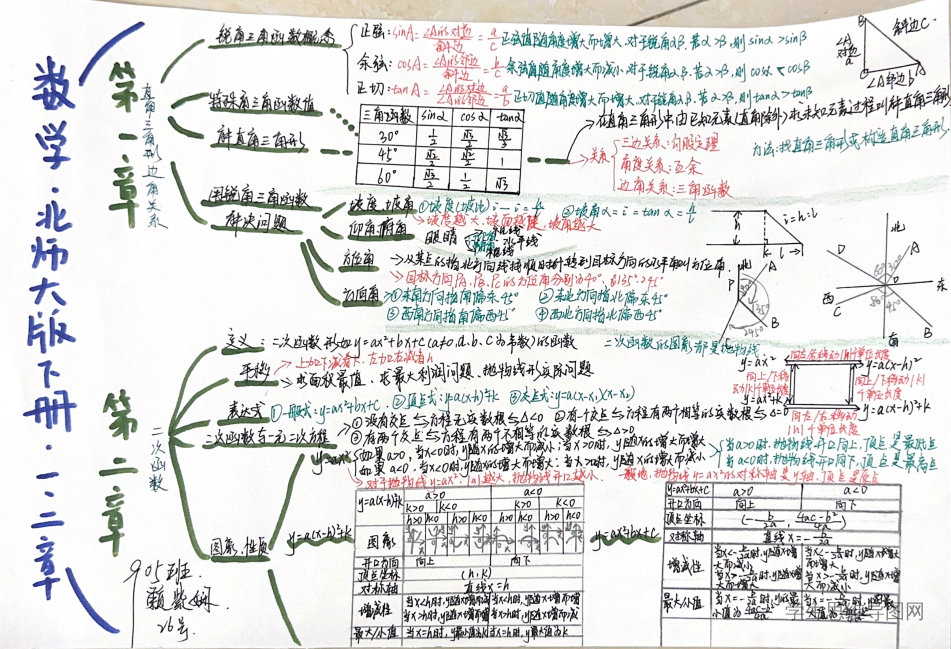 数学·北师大版下册·一、二章
第一章
直角三角形边角关系
锐角三角函数概念
正弦: sinA = ∠A的对边/斜边 = a/c 正弦值随角度增大而增大, 对于锐角α.β. 若α>β, 则 sinα>sinβ
余弦: cosA = ∠A的邻边/斜边 = b/c 余弦值随角度增大而减小, 对于锐角α.β. 若α>β, 则 cosα<cosβ
正切: tanA = ∠A的对边/∠A的邻边 = a/b 正切值随角度增大而增大, 对于锐角α.β. 若α>β, 则 tanα>tanβ
B
斜边c
∠A对边a
∠A邻边b
A
特殊角三角函数值
三角函数 sinα cosα tanα
30° 1/2 √3/2 √3/3
45° √2/2 √2/2 1
60° 1/2 √3
解直角三角形
在直角三角形中由已知元素(直角除外)求未知元素过程叫解直角三角形
关系
三边关系: 勾股定理
角度关系: 互余
边角关系: 三角函数
方法: 找直角三角形或构造直角三角形
用锐角三角函数
解决问题
坡度、坡角
①坡度(坡比)i
②坡角α = i = tanα = h/l
坡度越大, 坡面越陡, 坡角越大
仰角、俯角
眼睛
水平线
方位角
从某点的指北方向线按顺时针转到目标方向的水平角叫方位角.
目标方向PA、PB、PC的方位角分别为40°, 135°, 245°
方向角
①东南方向指南偏东45° ②东北方向指北偏东45°
③西南方向指南偏西45° ④西北方向指北偏西45°
i=h:l
h
l
北
A
P
B
C
135°
245°
北
D
A
西
东
C
B
南
第二章
二次函数
定义: 二次函数形如y=ax²+bx+c(a≠0, a.b.c为常数)的函数
二次函数的图象都是抛物线
平移
上加下减看k, 左加右减看h
求面积最值、求最大利润问题、抛物线形实际问题
表达式
①一般式: y=ax²+bx+c ②顶点式: y=a(x-h)²+k ③交点式: y=a(x-x₁)(x-x₂)
向左/右移动|h|个单位长度
y=ax²
y=a(x-h)²
向上/下移动|k|个单位长度
向上/下移动|k|个单位长度
y=ax²+k
y=a(x-h)²+k
向左/右移动|h|个单位长度
二次函数与一元二次方程
①没有交点⇔方程无实数根⇔Δ<0 ②有一个交点⇔方程有两个相等的实数根⇔Δ=0
③有两个交点⇔方程有两个不相等的实数根⇔Δ>0
图象、性质
y=ax²
如果a>0, 当x<0时, y随x的增大而减小; 当x>0时, y随x的增大而增大
如果a<0, 当x<0时, y随x的增大而增大; 当x>0时, y随x的增大而减小
当a>0时, 抛物线开口向上, 顶点是最低点
当a<0时, 抛物线开口向下, 顶点是最高点
对于抛物线y=ax², |a|越大, 抛物线开口越小.
一般地, 抛物线y=ax²的对称轴是y轴, 顶点是原点
y=a(x-h)²+k
y=a(x-h)²+k a>0 a<0
k>0 k<0 k>0 k<0
h>0 h<0 h>0 h<0 h>0 h<0 h>0 h<0
图象
开口方向 向上 向下
顶点坐标 (h, k)
对称轴 直线x=h
增减性 当x<h时, y随x增而减 当x<h时, y随x增而增
当x>h时, y随x增而增 当x>h时, y随x增而减
最大/小值 当x=h时, y最小值为k 当x=h时, y最大值为k
y=ax²+bx+c
y=ax²+bx+c a>0 a<0
开口方向 向上 向下
顶点坐标 (-b/2a, 4ac-b²/4a)
对称轴 直线x=-b/2a
增减性 当x<-b/2a时, y随x增大而减小 当x<-b/2a时, y随x增大而增大
当x>-b/2a时, y随x增大而增大 当x>-b/2a时, y随x增大而减小
最大/小值 当x=-b/2a时, y有最小值为4ac-b²/4a 当x=-b/2a时, y有最大值为
905班.
26号.